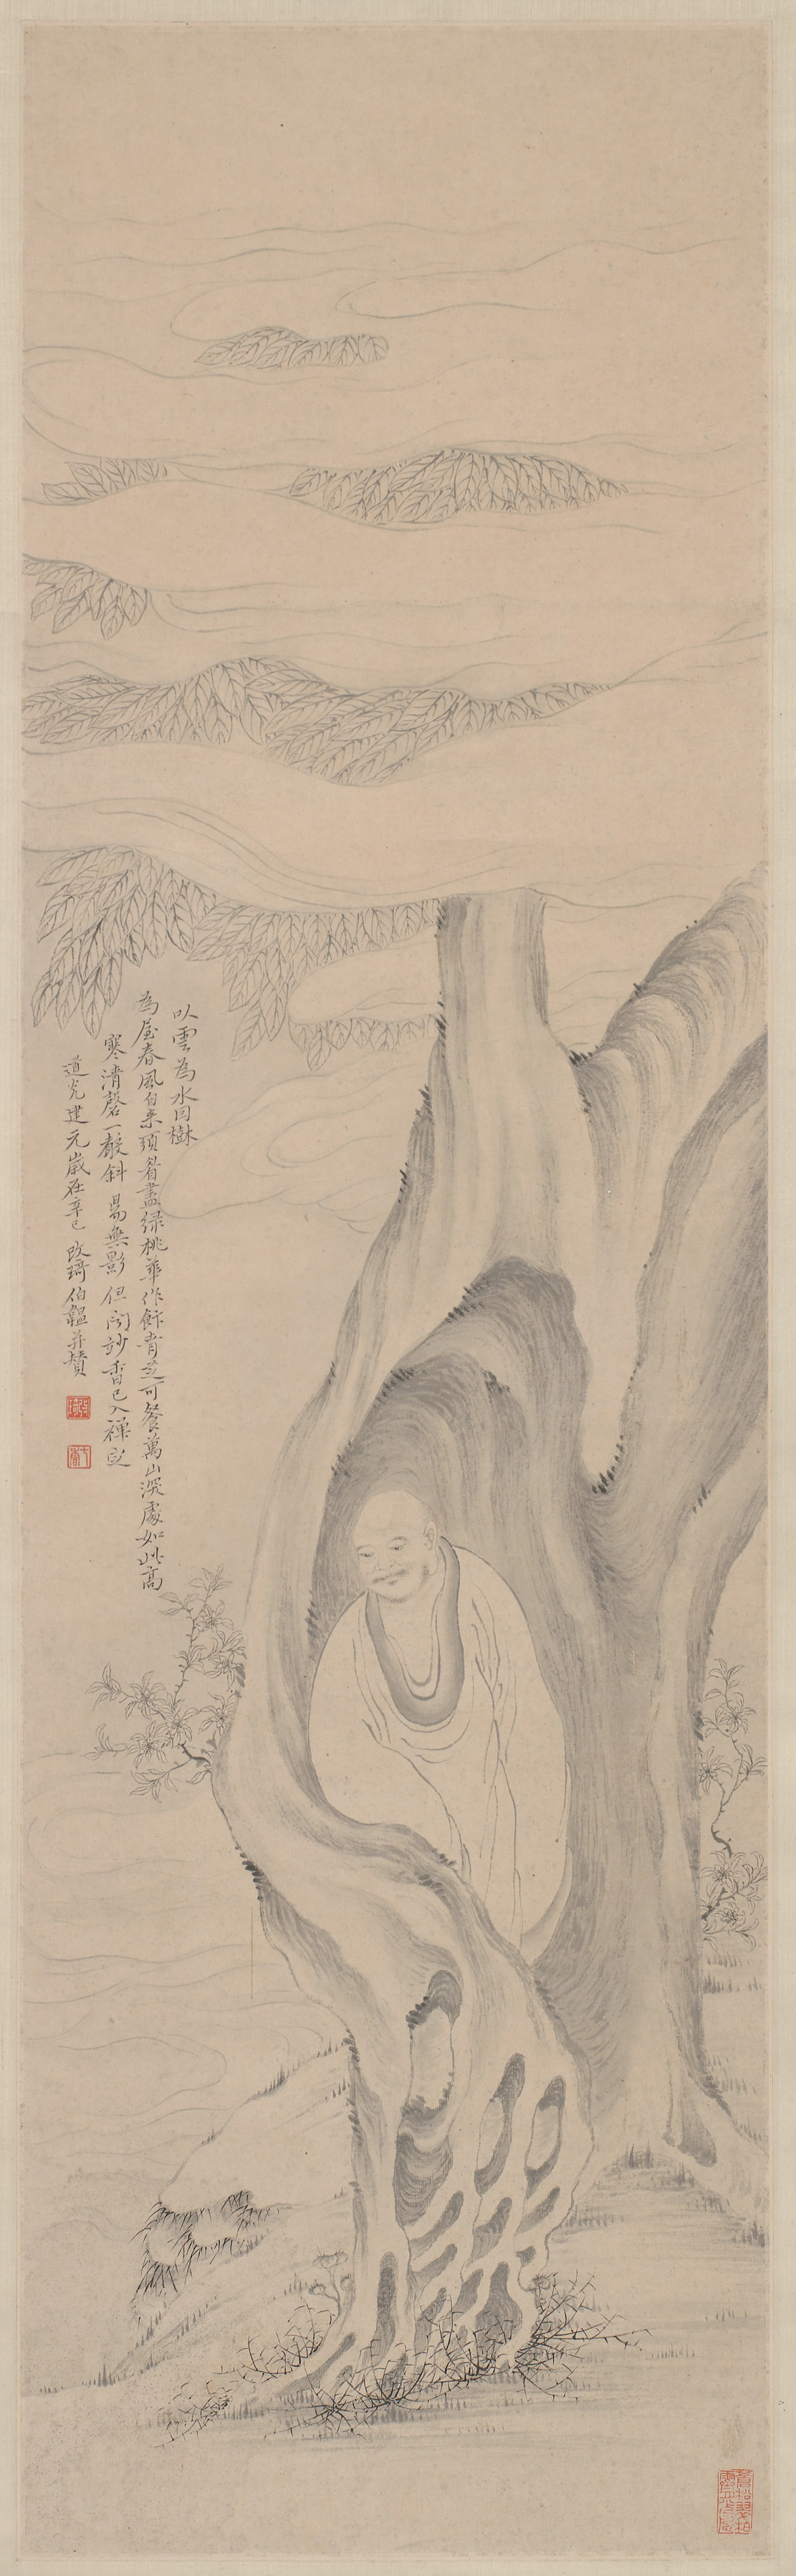 以雲為水因樹
為屋春風自來須眉盡綠桃華作飰青芝可餐萬山深處如此高
寒清磬一聲斜陽無影但聞妙香已入禪定
道光建元歲在辛巳 改琦伯韞并贊